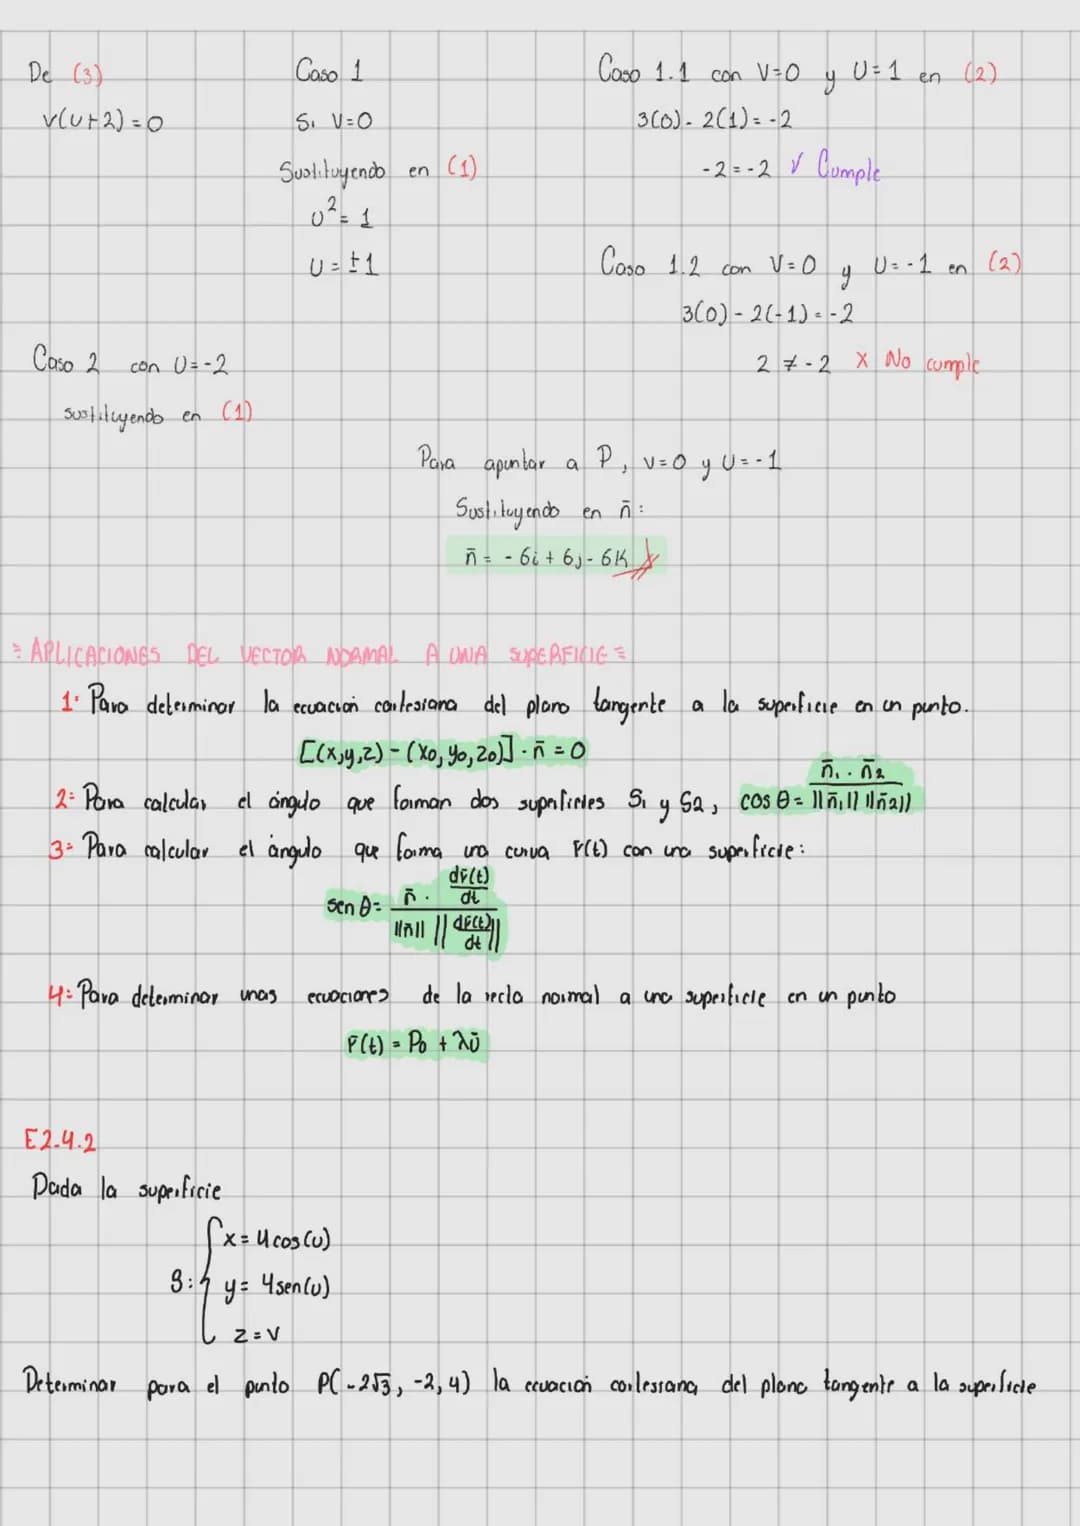 De (3)
v(u+2)=0
Caso 1
Si V=0
Sustituyendo en (1)
u²= 1
U = ±1
Caso 1.1 con V=0 y U=1 en (2)
3(0)- 2(1)= -2
-2=-2 √ Cumple
Caso 1.2 con V=0 y U=-1 en (2)
3(0)- 2(-1)=-2
2 ≠ -2 X No cumple
Caso 2 con U=-2
sustituyendo en (1)
Para apuntar a P, v=0 y U=-1
Sustituyendo en n̄:
n̄ = - 6i + 6j - 6K
= APLICACIONES DEL VECTOR NORMAL A UNA SUPERFICIE =
1: Para determinar la ecuación cartesiana del plano tangente a la superficie en un punto.
[(x,y,z)-(x0,y0,z0)]·n̄=0
2: Para calcular el ángulo que forman dos superficies S1 y S2, cos θ= n̄1·n̄2 / ||n̄1|| ||n̄2||
3: Para calcular el ángulo que forma una curva r̄(t) con una superficie:
sen θ= n̄ · dr̄(t)/dt / ||n̄|| ||dr̄(t)/dt||
4: Para determinar unas ecuaciones de la recta normal a una superficie en un punto
r̄(t) = P0 + λū
E2.4.2
Dada la superficie
x= 4cos(u)
S: { y= 4sen(u)
z=v
Determinar para el punto P(-2√3, -2,4) la ecuación cartesiana del plano tangente a la superficie